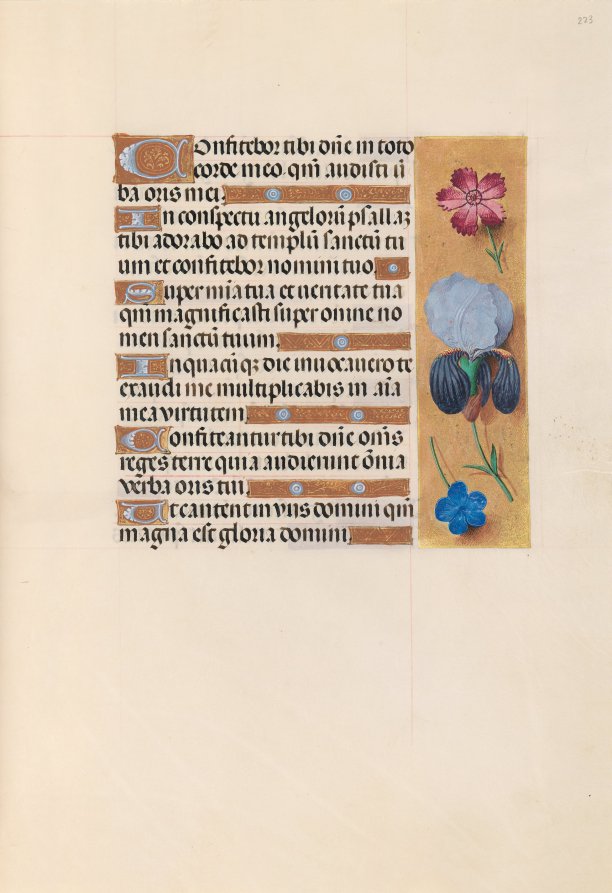 273
Confitebor tibi dn̄e in toto
corde meo. qm̄ audisti ū
ba oris mei.
In conspectu angelorū psallaʒ
tibi adorabo ad templū sanctū tu
um et confitebor nomini tuo.
Super mīa tua et ueritate tua
qm̄ magnificasti super omne no
men sanctū tuum.
In quacūqʒ die inuocauero te
exaudi me multiplicabis in aīa
mea virtutem
Confiteantur tibi dn̄e om̄s
reges terre quia audierunt om̄ia
verba oris tui
Et cantent in viis domini qm̄
magna est gloria domini.